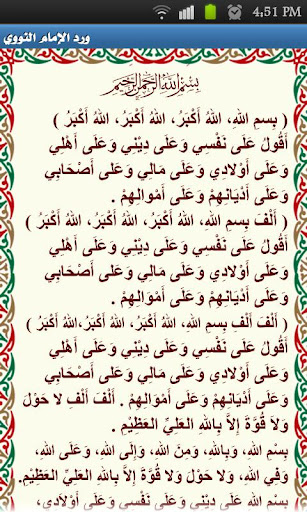 4:51 PM
ورد الإمام النووي
بِسْمِ اللهِ الرَّحْمنِ الرَّحِيمِ
( بِسمِ اللهِ، اللهُ أَكْبَرُ، اللهُ أَكْبَرُ، اللهُ أَكْبَرُ )
أَقُولُ عَلَى نَفْسِي وَعَلَى دِيْنِي وَعَلَى أَهْلِي
وَعَلَى أَوْلادِي وَعَلَى مَالِي وَعَلَى أَصْحَابِي
وَعَلَى أَدْيَانِهِمْ وَعَلَى أَمْوَالِهِمْ .
( أَلْفَ بِسمِ اللهِ، اللهُ أَكْبَرُ، اللهُ أَكْبَرُ، اللهُ أَكْبَرُ )
أَقُولُ عَلَى نَفْسِي وَعَلَى دِيْنِي وَعَلَى أَهْلِي
وَعَلَى أَوْلادِي وَعَلَى مَالِي وَعَلَى أَصْحَابِي
وَعَلَى أَدْيَانِهِمْ وَعَلَى أَمْوَالِهِمْ .
( أَلْفَ أَلْفِ بِسمِ اللهِ، اللهُ أَكْبَرُ، اللهُ أَكْبَرُ، اللهُ أَكْبَرُ )
أَقُولُ عَلَى نَفْسِي وَعَلَى دِيْنِي وَعَلَى أَهْلِي
وَعَلَى أَوْلادِي وَعَلَى مَالِي وَعَلَى أَصْحَابِي
وَعَلَى أَدْيَانِهِمْ وَعَلَى أَمْوَالِهِمْ . أَلْفَ أَلْفِ لا حَوْلَ
وَلا قُوَّةَ إِلاَّ بِاللهِ العَلِيِّ العَظِيْمِ .
بِسْمِ اللهِ، وَبِاللهِ، وَمِنَ اللهِ، وَإِلَى اللهِ، وَعَلَى اللهِ،
وَفِي اللهِ، وَلا حَوْلَ وَلا قُوَّةَ إِلاَّ بِاللهِ العَلِيِّ العَظِيْمِ.
بِسْمِ اللهِ عَلَى دِيْنِي وَعَلَى نَفْسِي وَعَلَى أَوْلادِي،